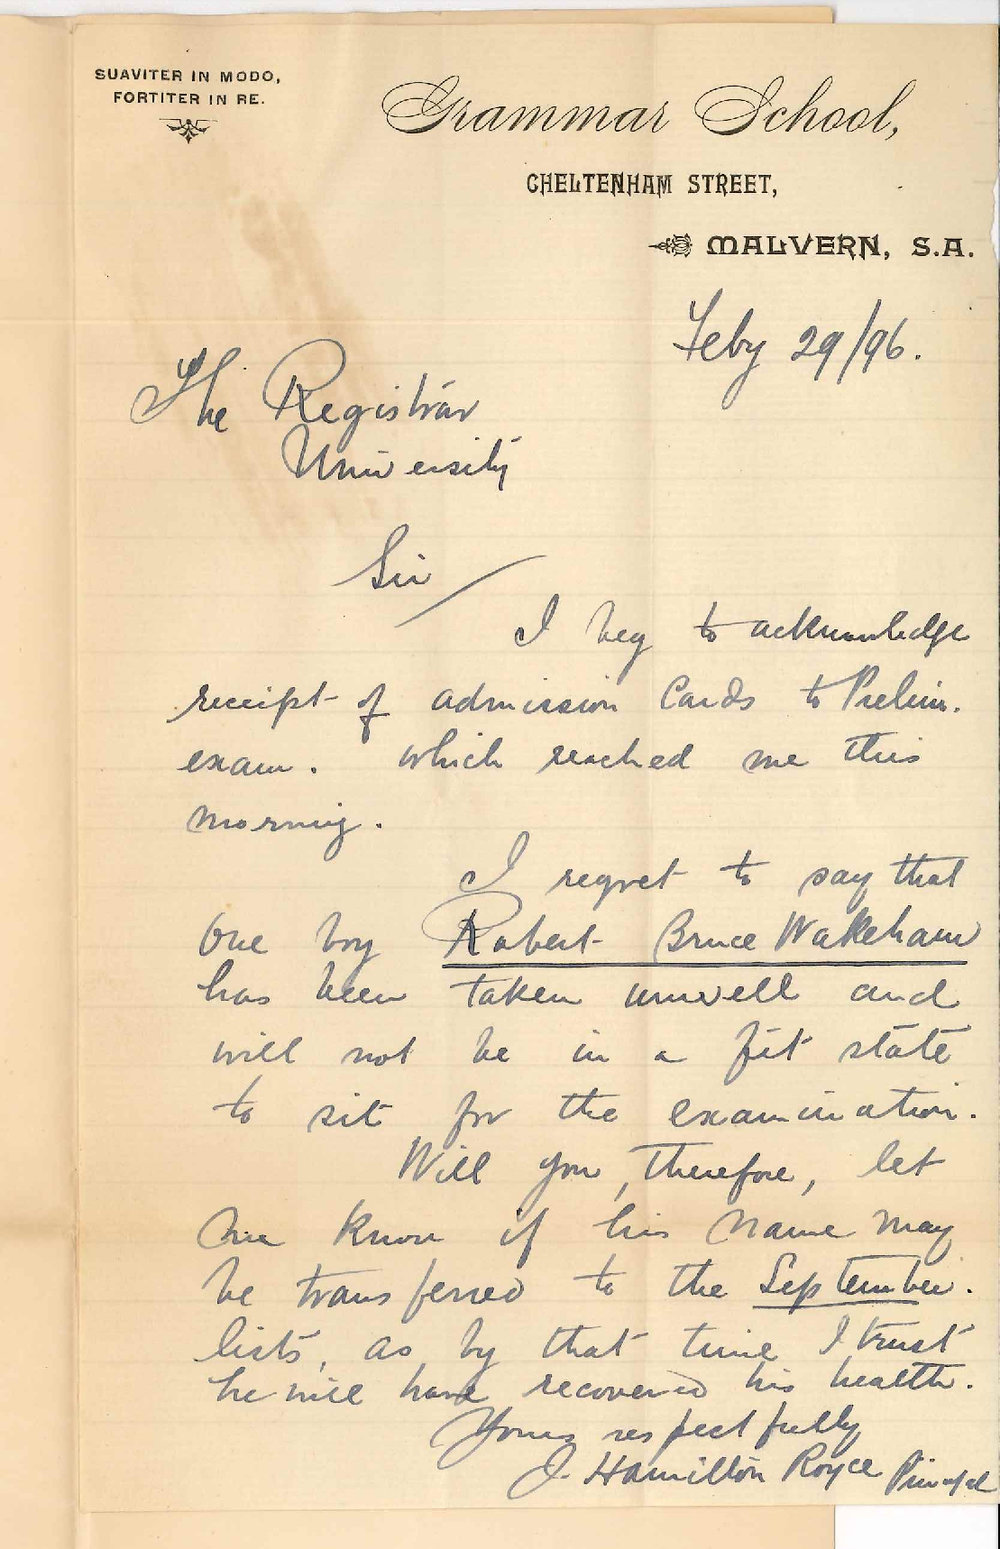 SUAVITER IN MODO,
FORTITER IN RE.
Grammar School,
CHELTENHAM STREET,
MALVERN, S.A.
Feby 29/96.
The Registrar
University
Sir
I beg to acknowledge
receipt of admission Cards to Prelim.
exam. which reached me this
morning.
I regret to say that
one boy Robert Bruce Wakeham
has been taken unwell and
will not be in a fit state
to sit for the examination.
Will you, therefore, let
me know if his name may
be transferred to the September.
lists, as by that time I trust
he will have recovered his health.
Yours respectfully
J. Hamilton Royce Principal